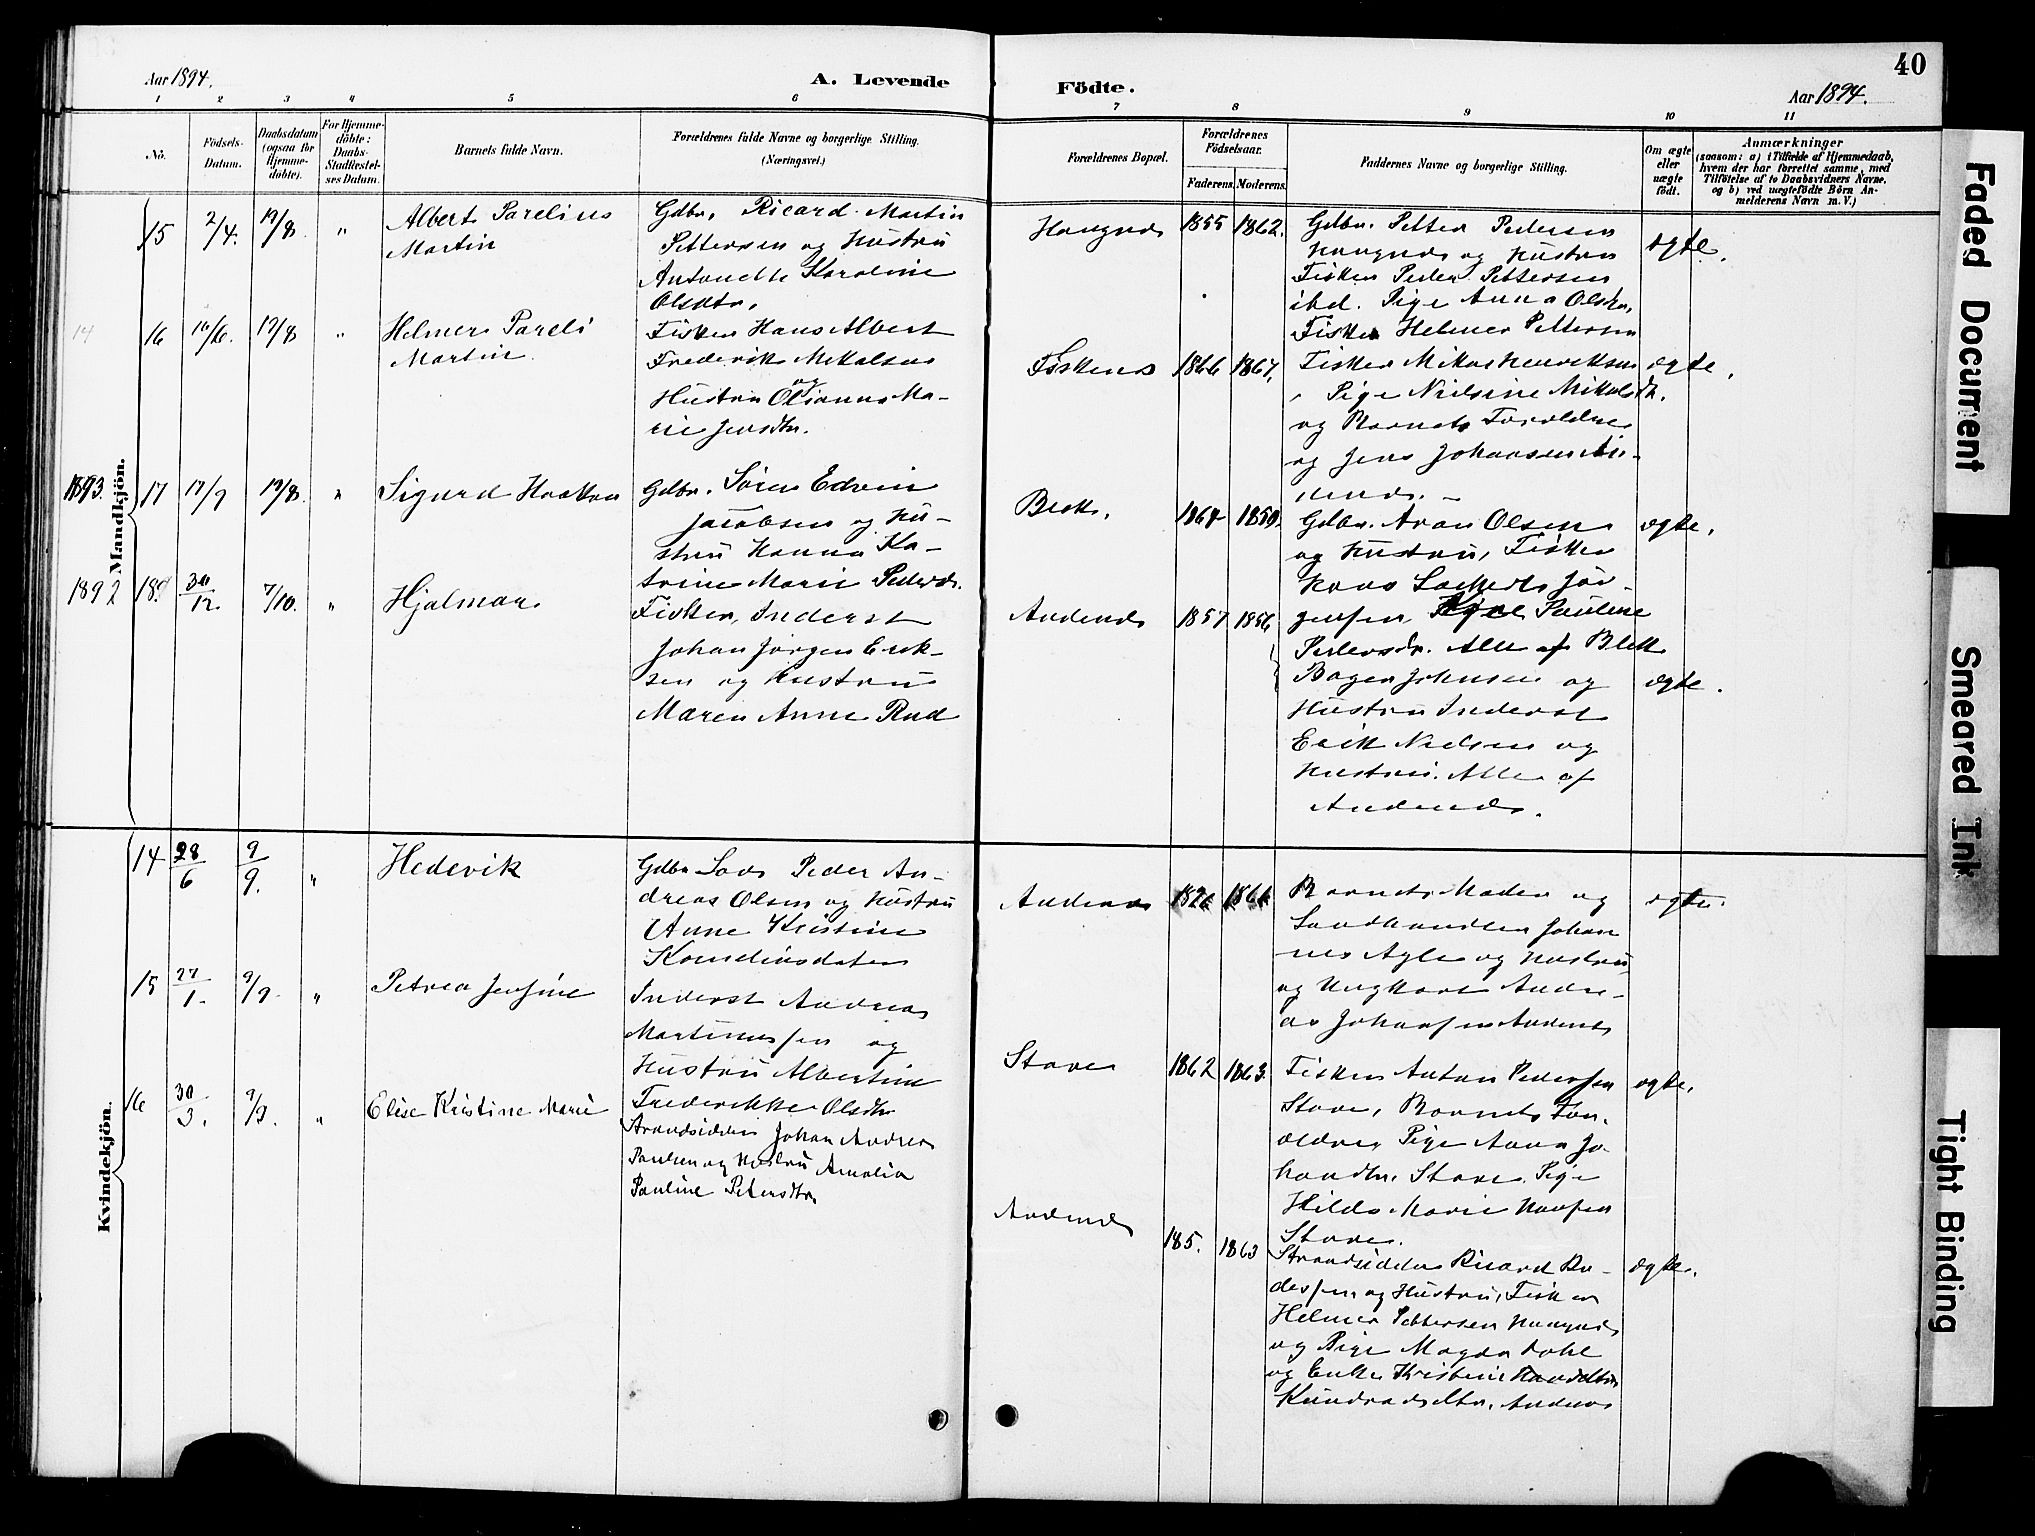 Aar 1894.
A. Levende
Födte.
Aar 1894.
40
1 2 3 4 5 6 7 8 9 10 11
No.
Födsels-
Datum.
Daabsdatum
(ogsaa for
Hjemme-
döbte).
For Hjemme-
döbte:
Daabs-
Stadfæstel-
ses Datum.
Barnets fulde Navn.
Forældrenes fulde Navne og borgerlige Stilling.
(Næringsvei.)
Forældrenes Bopæl.
Forældrenes
Födselsaar.
Faderens. Moderens.
Faddernes Navne og borgerlige Stilling.
Om ægte
eller
uægte
födt.
Anmærkninger
(saasom: a) i Tilfælde af Hjemmedaab,
hvem der har forrettet samme, med
Tilföielse af to Daabsvidners Navne,
og b) ved uægtefödte Börn An-
melderens Navn m. V.)
Mandkjön.
15 2/4. 19/8 "
Albert Parelius
Martin
Gdbr. Ricard Martin
Pettersen og Hustru
Antonette Karoline
Olsdtr.
Haugnes 1855 1862.
Gdbr. Petter Pedersen
Haugnes og Hustru
Fisker Peder Pettersen
ibd. Pige Anna Olsdtr,
Fisker Helmer Pettersen
ægte.
14 16 16/6. 19/8 "
Helmer Pareli
Martin
Fisker Hans Albert
Frederik Mikalsen
og
Hustru Olianna Ma-
rie Jensdtr.
Fiskenes 1866 1867.
Fisker Mikal Henriksen
Pige Nielsine Mikalsdtr.
og Barnets Forældre
og Jens Johansen An-
denes. –
ægte.
1893. 17 17/9 19/8. "
Sigurd Haakon
Gdbr. Sören Edvin
Jacobsen og Hu-
stru Hanna Ka-
trine Marie Pedersdtr.
Bleik. 1864 1850.
Gdbr. Aron Olsen
og Hustru, Fisker
Hans Jör-
gensen, Pige Pauline
Pedersdr. Alle af Bleik
ægte.
1892 18 30/12. 7/10. "
Hjalmar
Fisker, Inderst
Johan Jörgen Erik-
sen og Hustru
Maren Anne Rud
Andenes 1857 1856
Bager Johnsen og
Hustru Inderst
Erik Nielsen og
Hustru. Alle af
Andenes.
ægte.
Kvindekjön.
14 28/6 9/9. "
Hedevik
Gdbr Lods Peder An-
dreas Olsen og Hustru
Anne Kristine
Korneliusdatter
Andenes 1826 1861
Barnets Moder og
Landhandler Johan
nes Agle og Hustru
og Ungkarl Andre-
as Johansen Andenes
ægte.
15 27/1. 9/9. "
Petrea Jensine
Inderst Andreas
Martinussen og
Hustru Albertine
Frederikke Olsdtr
Stave 1862 1863.
Fisker Anton Pedersen
Stave, Barnets For-
ældre, Pige Anna Jo-
hansdtr. Stave. Pige
Hilda Marie Hansen
Stave.
ægte.
16 30/3. 9/9. "
Elise Kristine Marie
Strandsidder Johan Andreas
Paulsen og Hustru Amalia
Pauline Petersdtr
Andenes 185. 1863
Strandsidder Ricard
og Hustru, Fisker
Helmer Pettersen Haugnes
og Pige Magda Dahl
og Enke Kristine
Kundradsdtr. Andenes
ægte.
Faded Document
Smeared Ink
Tight Binding